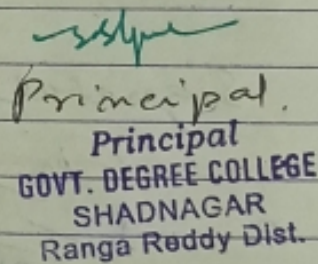 Principal.
Principal
GOVT. DEGREE COLLEGE
SHADNAGAR
Ranga Reddy Dist.